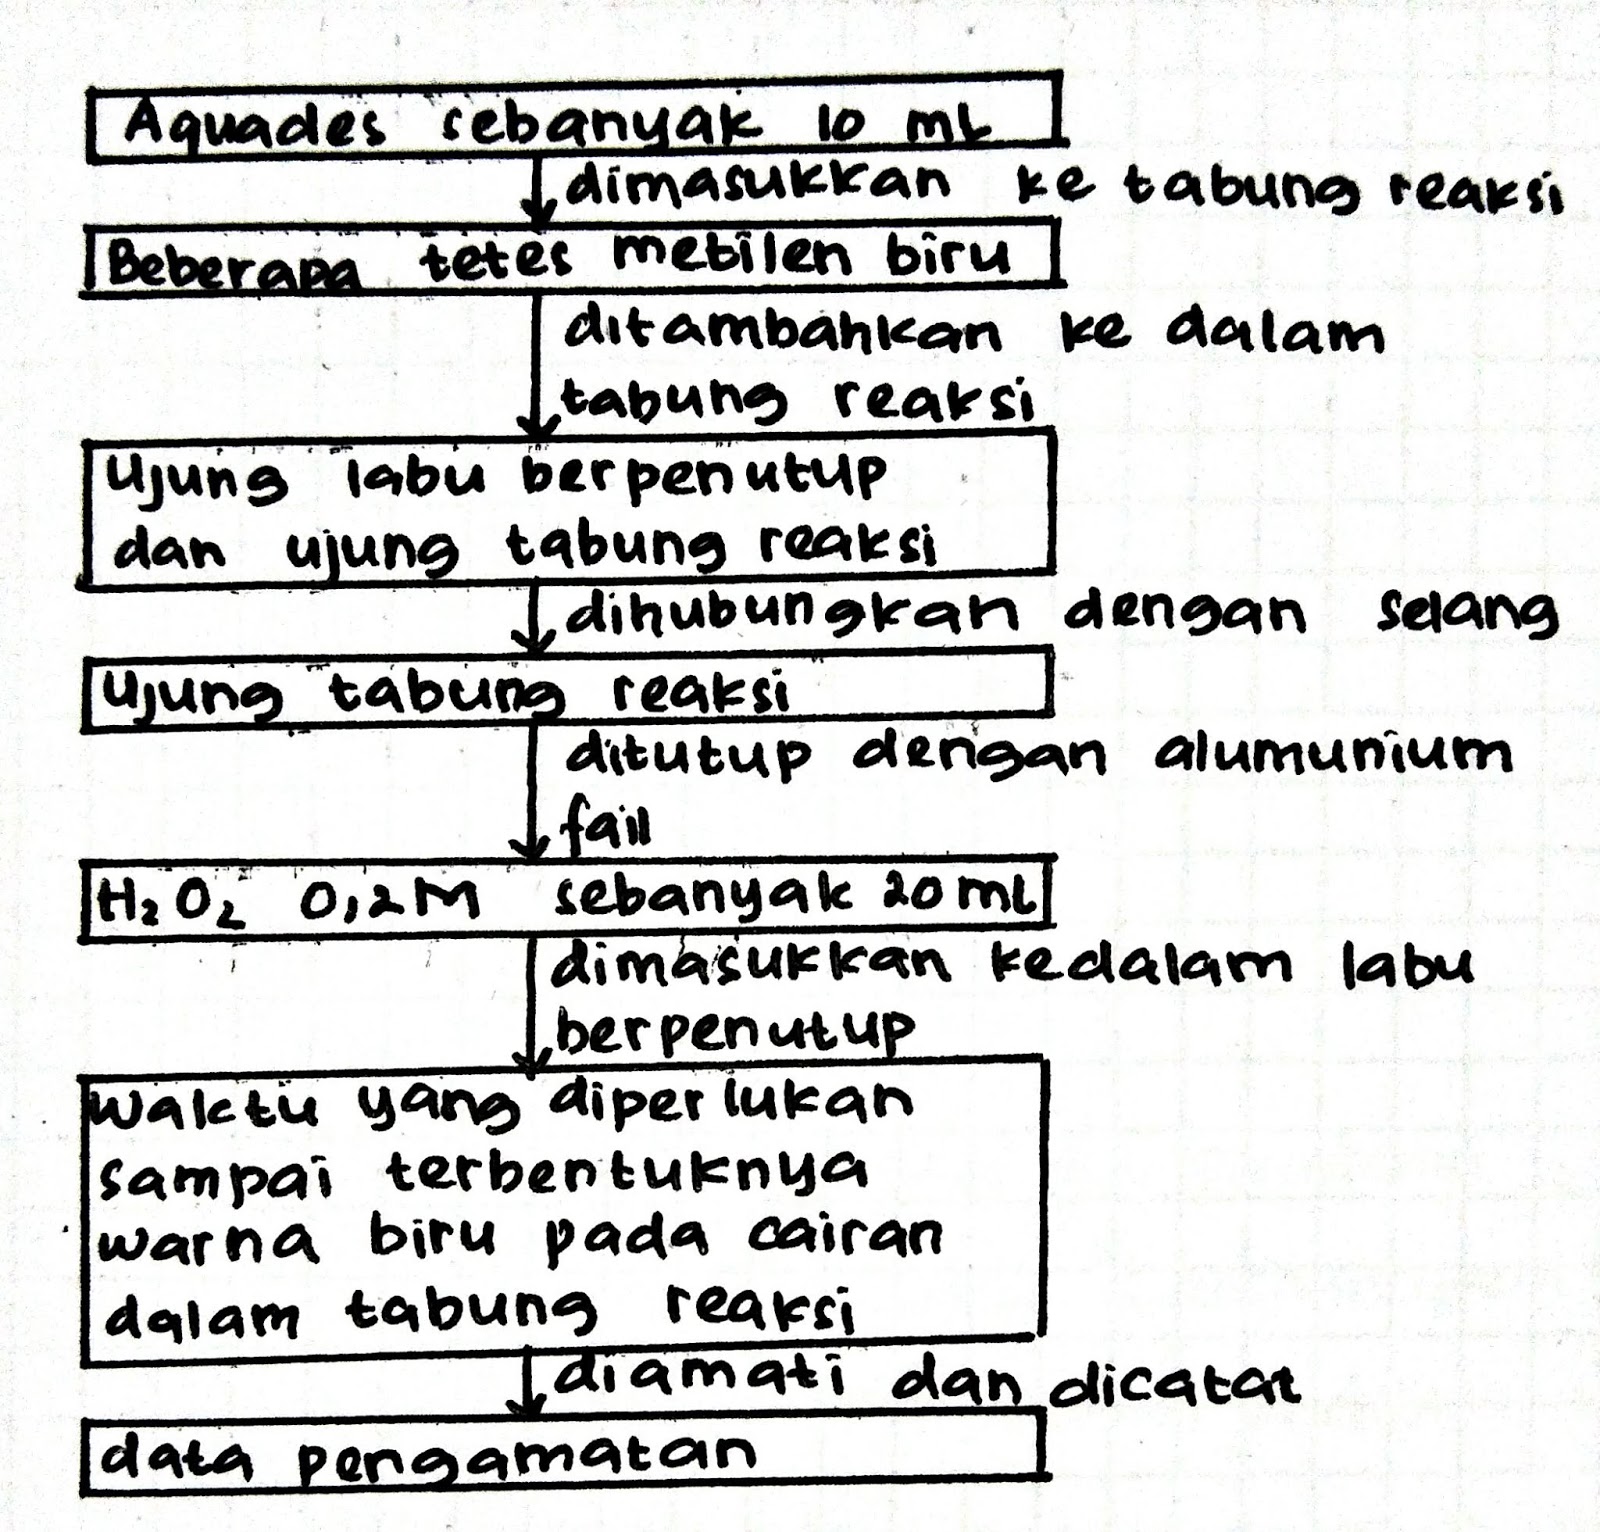 Aquades sebanyak 10 mL
dimasukkan ke tabung reaksi
Beberapa tetes metilen biru
ditambahkan ke dalam
tabung reaksi
Ujung labu berpenutup
dan ujung tabung reaksi
dihubungkan dengan selang
Ujung tabung reaksi
ditutup dengan alumunium
fail
H₂O₂ 0,2M sebanyak 20 mL
dimasukkan kedalam labu
berpenutup
Waktu yang diperlukan
sampai terbentuknya
warna biru pada cairan
dalam tabung reaksi
diamati dan dicatat
data pengamatan